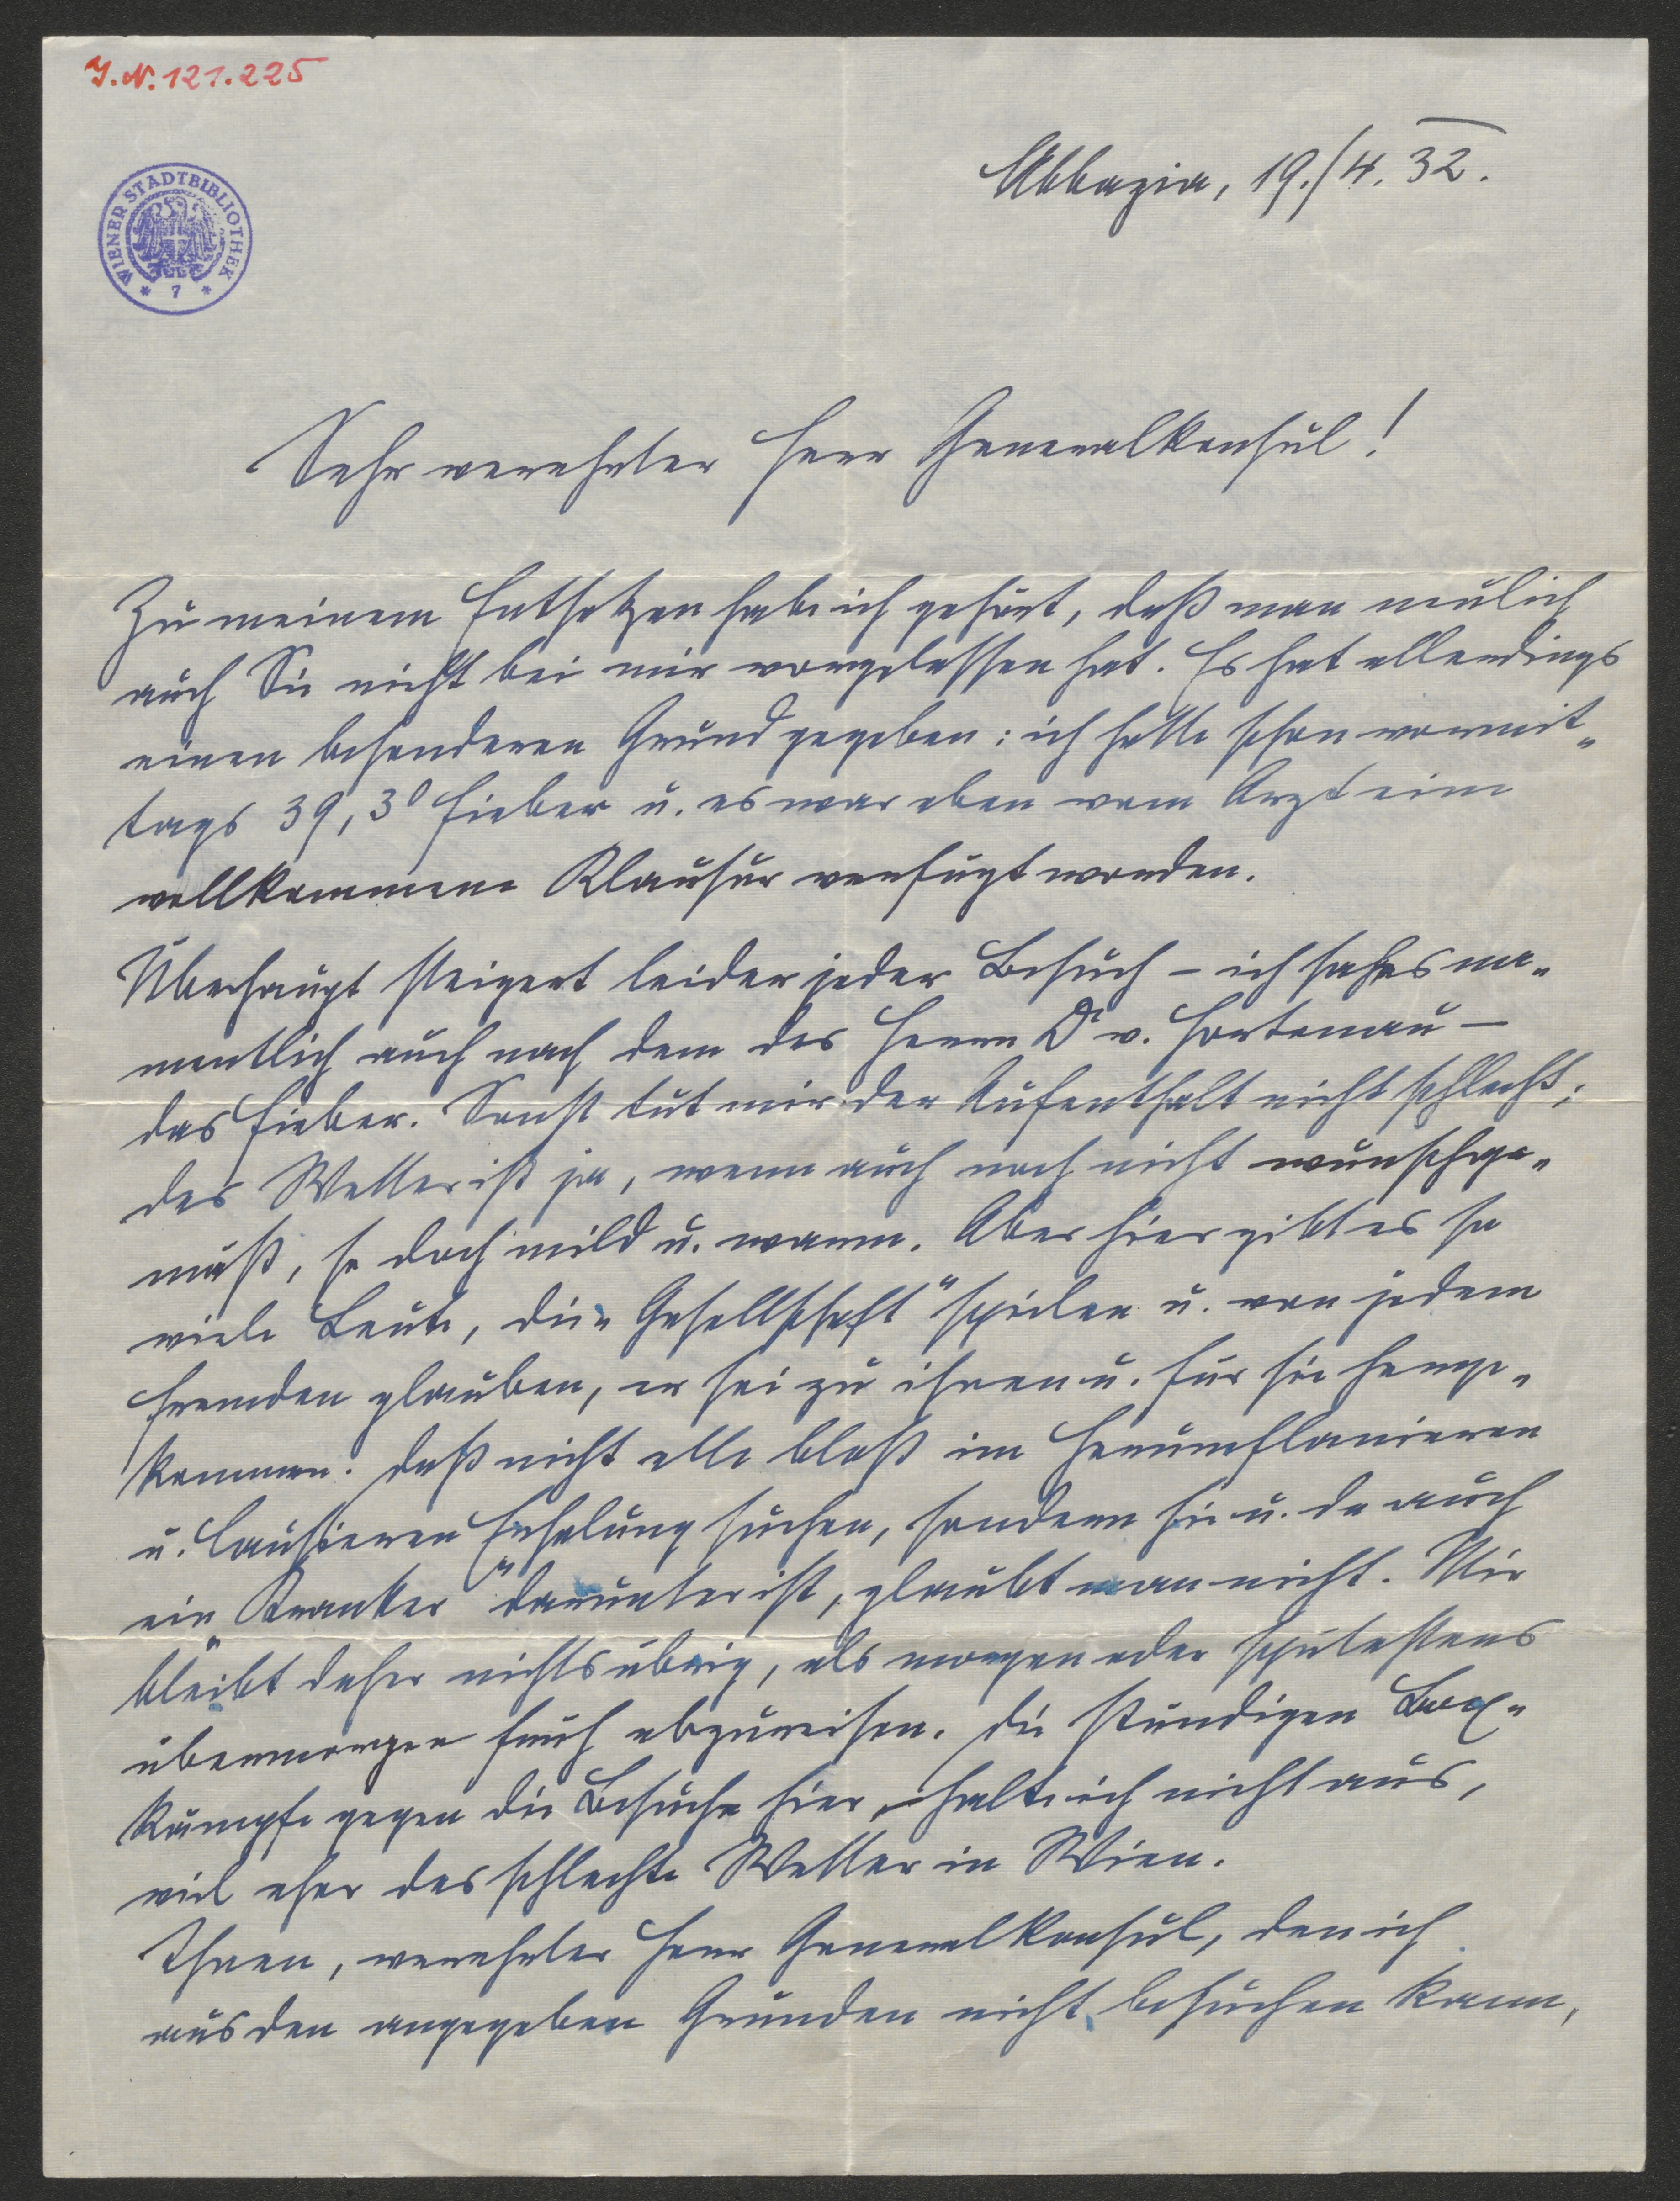 I.N. 121.225
WIENER STADTBIBLIOTHEK
* 7 *
Abbazia, 19./4. 32.
Sehr verehrter Herr Generalkonsul!
Zu meinem Entsetzen habe ich gehört, daß man neulich
auch Sie nicht bei mir vorgelassen hat. Es hat allerdings
einen besonderen Grund gegeben: ich hatte schon vormit-
tags 39,3° Fieber u. es war eben vom Arzt eine
vollkommene Klausur verfügt worden.
Überhaupt steigert leider jeder Besuch – ich sah es na-
mentlich auch nach dem des Herrn Dr v. Hortenau –
das Fieber. Sonst tut mir der Aufenthalt nicht schlecht;
das Wetter ist ja, wenn auch noch nicht wunschge-
mäß, so doch mild u. warm. Aber hier gibt es so
viele Leute, die „Gesellschaft" spielen u. von jedem
Fremden glauben, er sei zu ihnen u. für sie herge-
kommen. Daß nicht alle bloß im Herumflanieren
u. Causieren Erholung suchen, sondern hie u. da auch
ein „Kranker" darunter ist, glaubt man nicht. Mir
bleibt daher nichts übrig, als morgen oder spätestens
übermorgen früh abzureisen. Die ständigen Box-
kämpfe gegen die Besuche hier halte ich nicht aus,
viel eher das schlechte Wetter in Wien.
Ihnen, verehrter Herr Generalkonsul, den ich
aus den angegeben Gründen nicht besuchen kann,